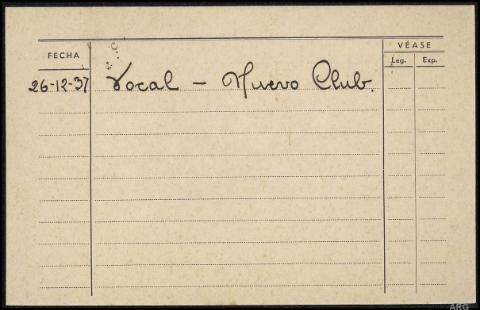 FECHA
VÉASE
Leg. Exp.
26-12-37 Vocal - Nuevo Club.
ARG